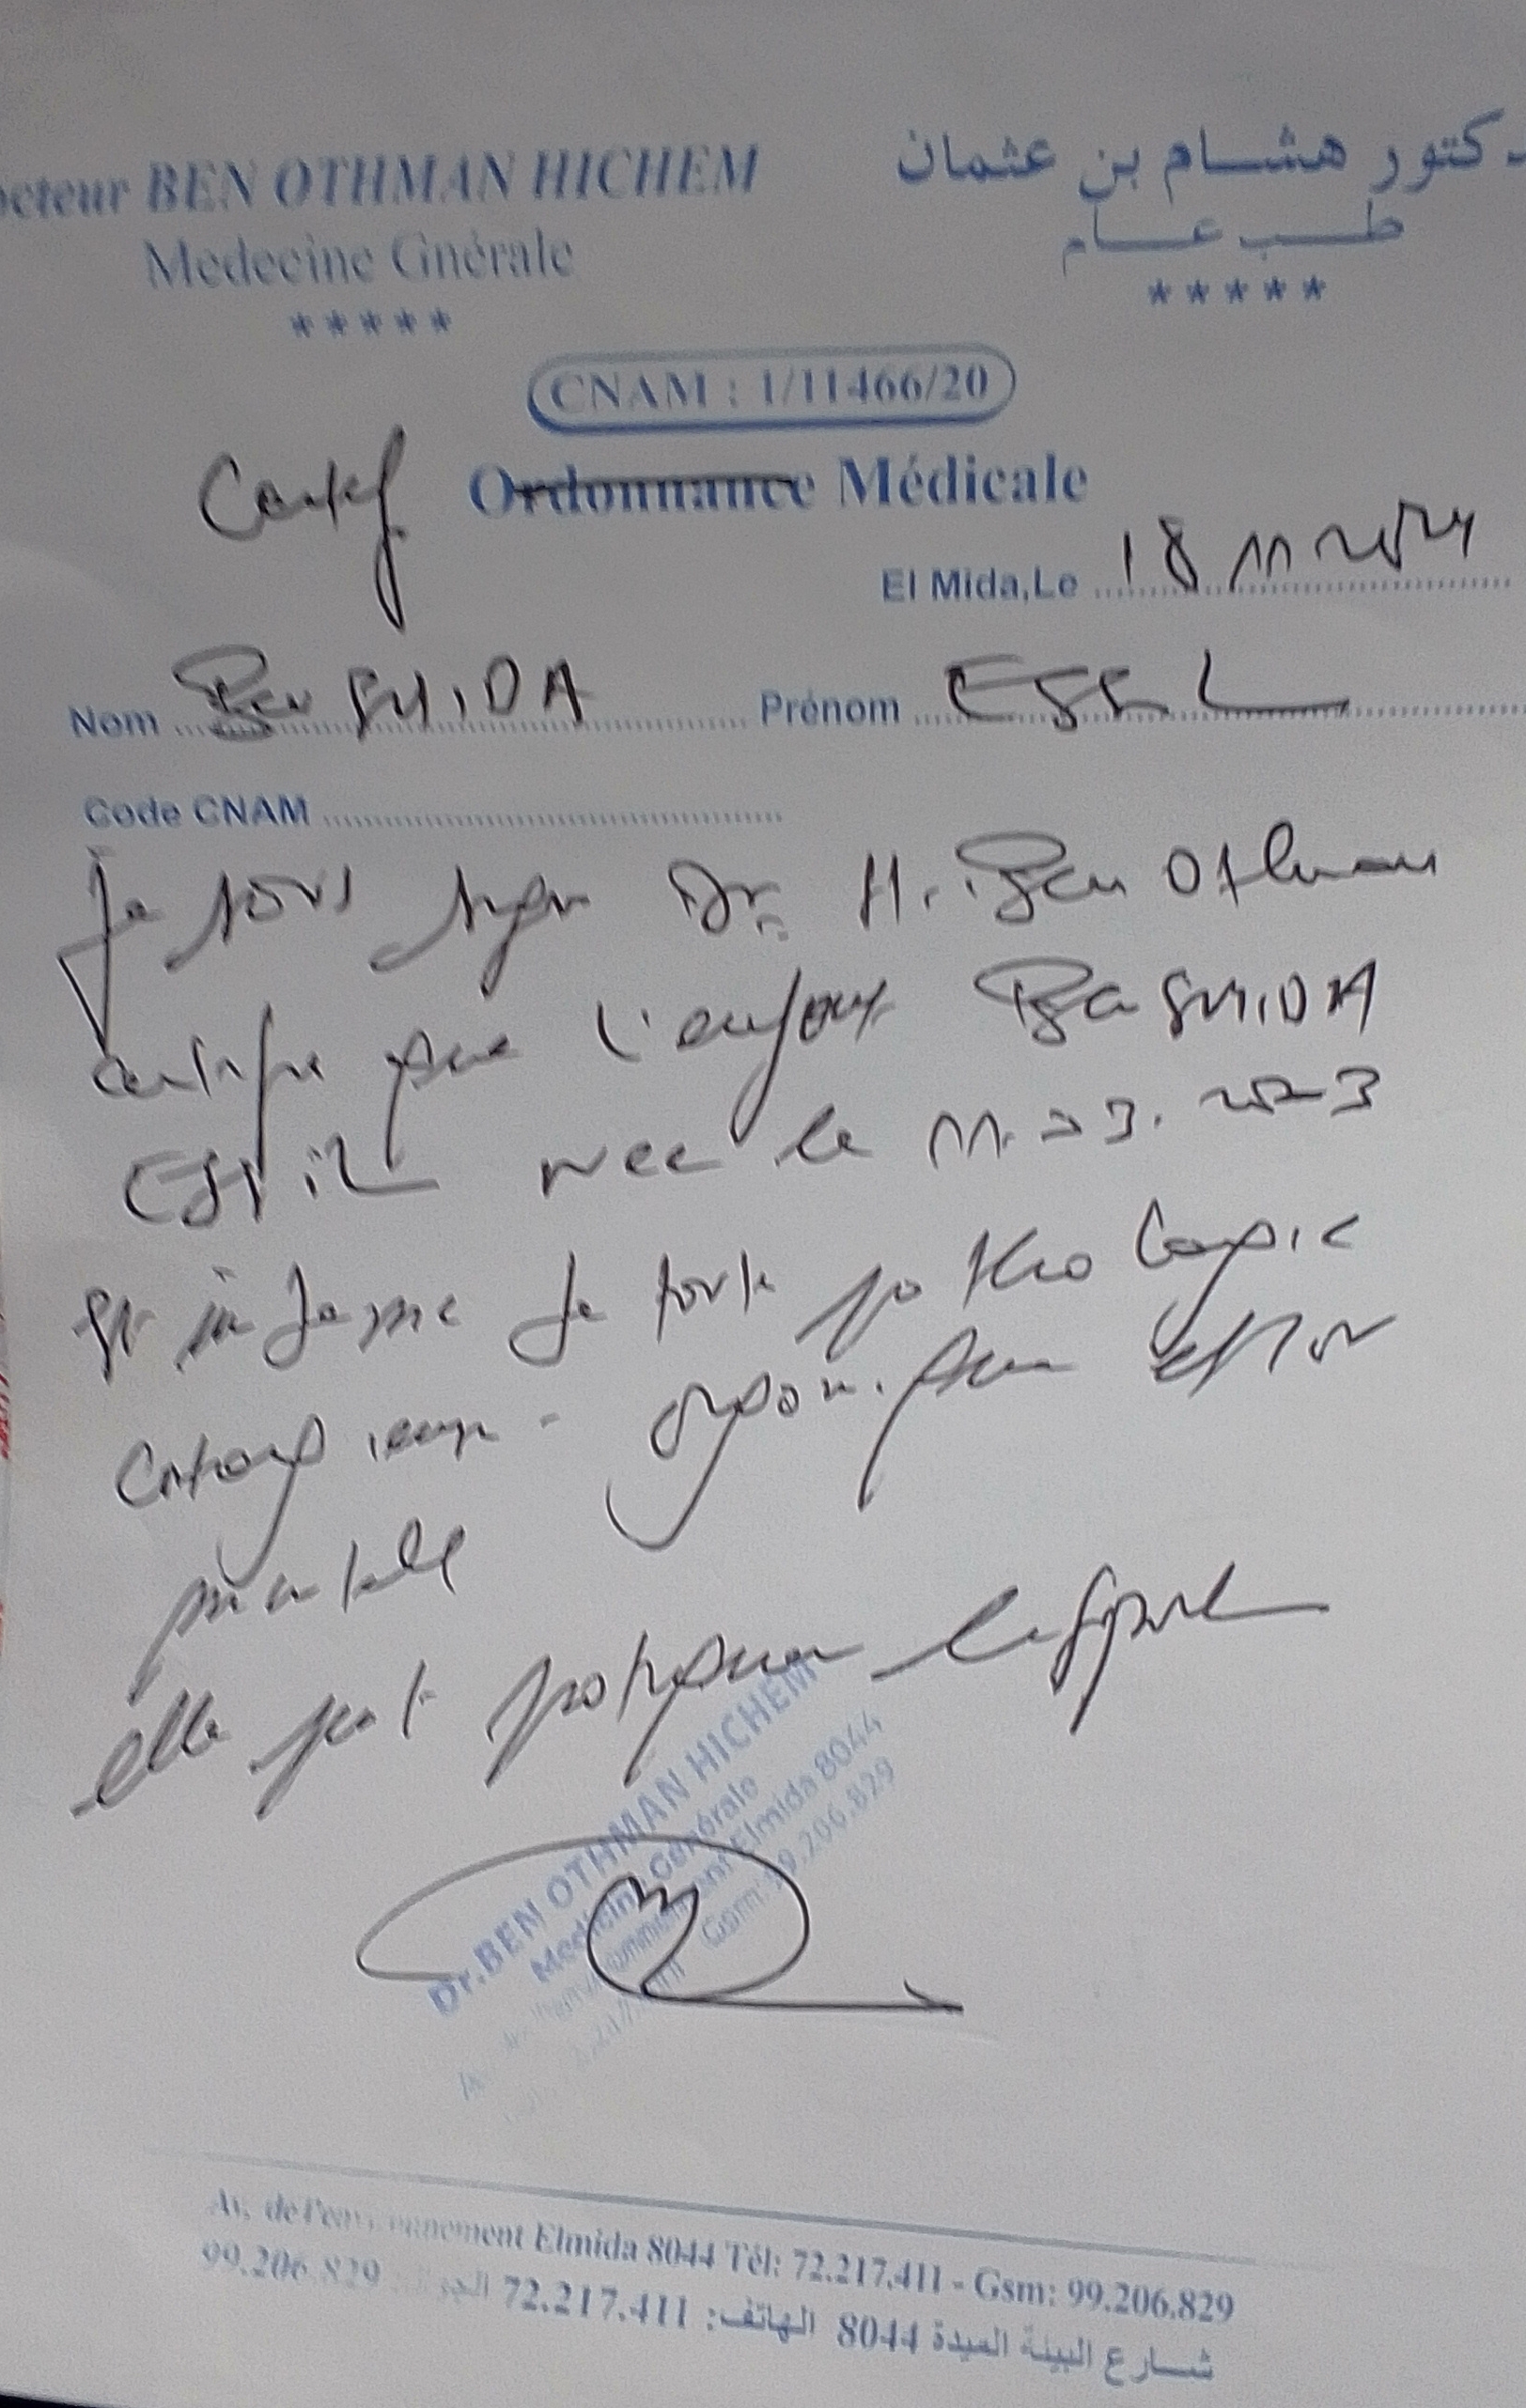 octeur BEN OTHMAN HICHEM
Medecine Gnérale
*****
دكتور هشام بن عثمان
طب عام
*****
CNAM : 1/11466/20
Certif Ordonnance Médicale
El Mida,Le 18 11 2024
Nom Ben SMIDA Prénom
Code CNAM
Je sous signé Dr. H. Ben Othman
certifie que l'enfant Ben SMIDA
née le 11. 03. 2023
est indemne de toute pathologie
contagieuse
mentale
elle peut pratiquer le sport
Dr.BEN OTHMAN HICHEM
Medicine Générale
Elmida 8044
Gsm: 99.206.829
Av. de l'environnement Elmida 8044 Tél: 72.217.411 - Gsm: 99.206.829
شارع البيئة الميدة 8044 الهاتف: 72.217.411 الجوال: 99.206.829